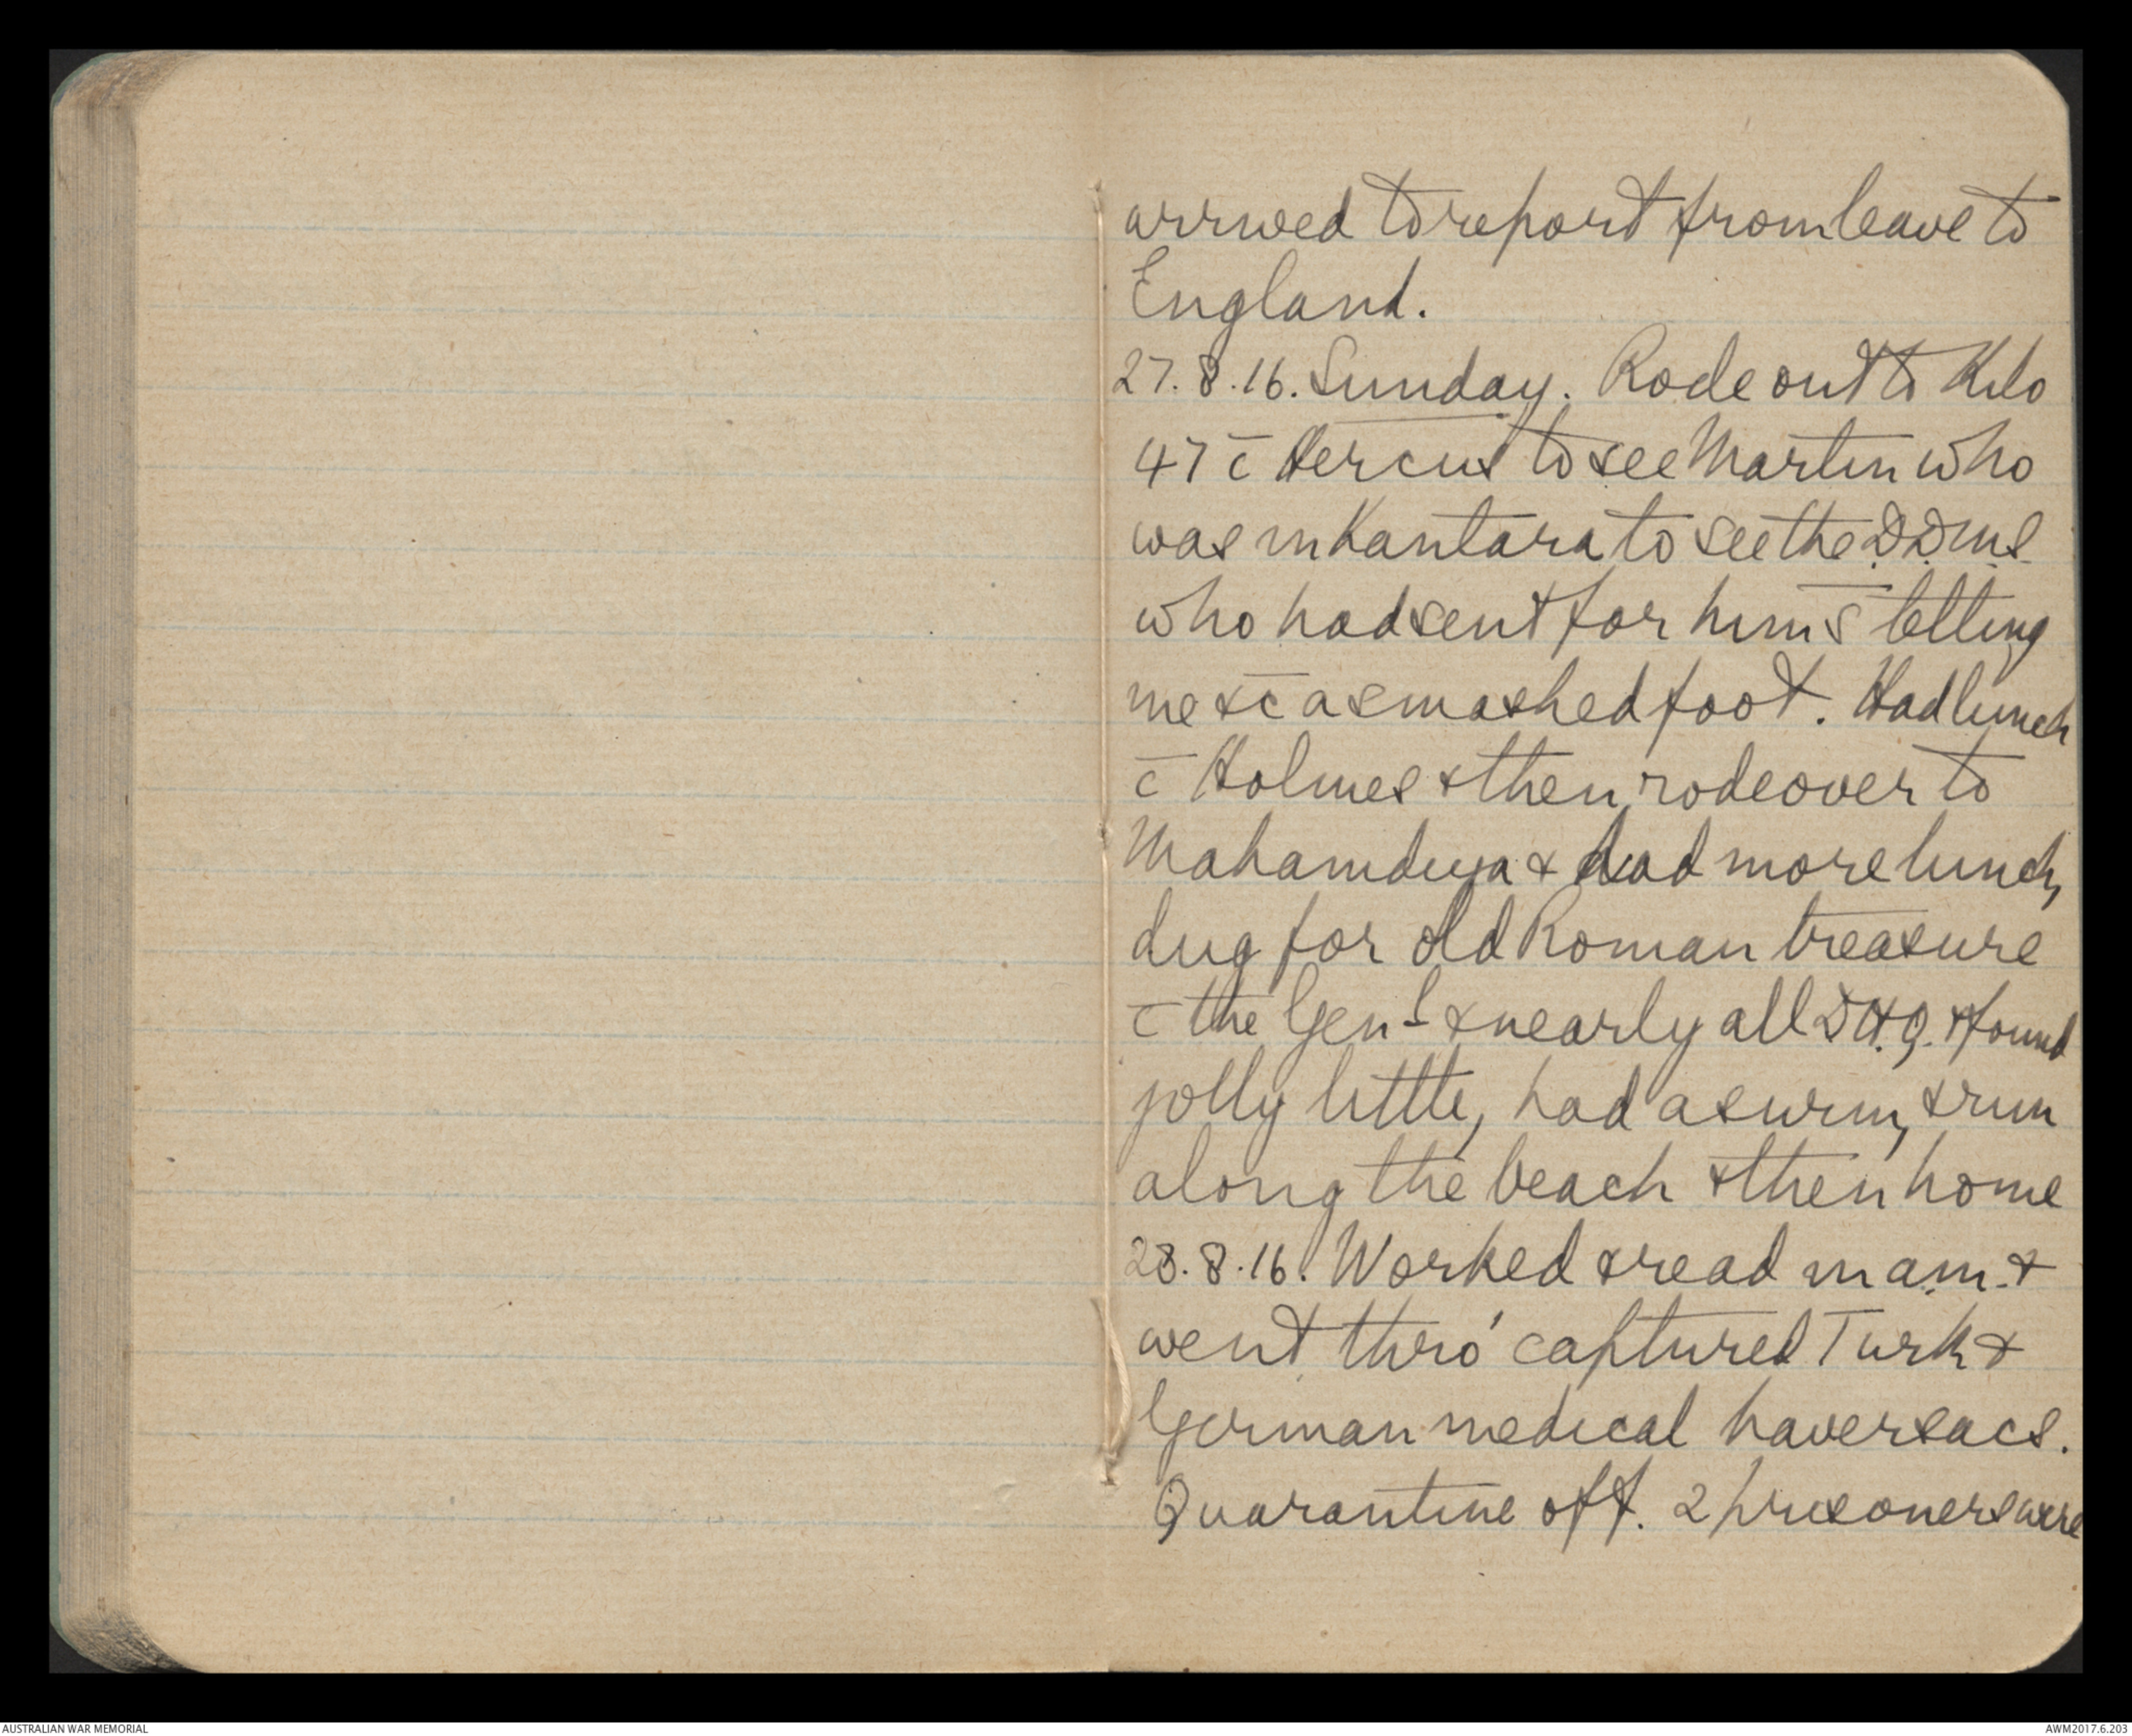 arrived to report from leave to
England.
27.8.16. Sunday. Rode out to Kilo
47 c̄ Hercus to see Martin who
was in Kantara to see the D.D.M.S.
who had sent for him s̄ letting
me & c̄ a smashed foot. Had lunch
c̄ Holmes & then rode over to
Mahamdiya & had more lunch,
dug for old Roman treasure
c̄ the Genl & nearly all D.H.Q. & found
jolly little, had a swim, & run
along the beach & then home
28.8.16. Worked & read in a.m. &
went thro' captured Turk &
German medical haversacs.
Quarantine off. 2 prisoners were
AUSTRALIAN WAR MEMORIAL
AWM2017.6.203